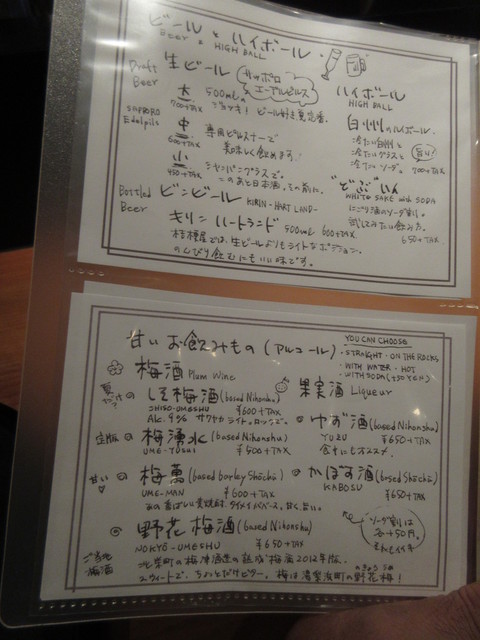 ビールとハイボール
Beer & HIGH BALL
Draft Beer
生ビール
サッポロ エーデルピルス
SAPPORO Edelpils
大 700+TAX
500mlの ジョッキ! ビール好き
中 600+TAX
専用ピルスナーで 美味しく飲めます!
小 450+TAX
シャンパングラスで。
このあと日本酒、その前に。
ハイボール
HIGH BALL
白州のハイボール
冷たい白州と
冷たいグラスと
冷たいソーダ。
旨い!
700+TAX
"どぶ"いん
WHITE SAKE with SODA
にごり酒のソーダ割。
試してみたい飲み方。
650+TAX
Bottled Beer
ビンビール KIRIN-HART LAND-
キリン ハートランド 500ml 600+TAX
桔梗屋では、生ビールよりもライトなポジション。
のんびり飲むにもいい味です。
甘いお飲みもの(アルコール)
YOU CAN CHOOSE
・STRAIGHT・ON THE ROCKS,
・WITH WATER・HOT
・WITH SODA(+50YEN)
梅酒 Plum Wine
しそ梅酒(based Nihonshu)
SHISO-UMESHU ¥600+TAX
Alc. 9% サワヤカ ライト。ロックで。
定版
梅湧水(based Nihonshu)
UME-YUSHI ¥500+TAX
甘い
梅萬(based barley Shōchū)
UME-MAN ¥600+TAX
野花梅酒(based Nihonshu)
NOKYŌ-UMESHU ¥650+TAX
ご当地梅酒
北栄町の梅津酒造の熟成梅酒2012年版。
スウィートで、ちょっとだけビター。梅は湯梨浜町の野花梅!
果実酒 Liqueur
ゆず酒(based Nihonshu)
YUZU ¥650+TAX
食中にもオススメ
かぼす酒(based Shōchū)
KABOSU ¥650+TAX
ソーダ割は
+50円。